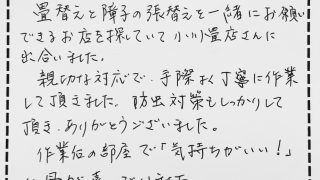 畳替えと障子の張替えを一緒にお願い
できるお店を探していて小川畳店さんに
出合いました。
親切な対応で、手際よく丁寧に作業
して頂きました。防虫対策もしっかりして
頂き、ありがとうございました。
作業后の部屋で「気持ちがいい！」